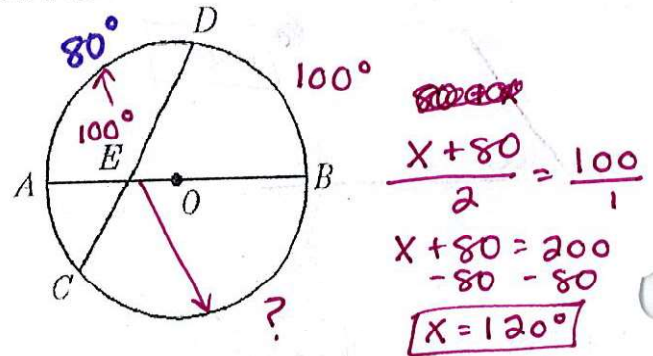 D
80°
100°
100°
E
A
B
O
C
?
x + 80
2
= 100
1
x + 80 = 200
- 80 - 80
x = 120°